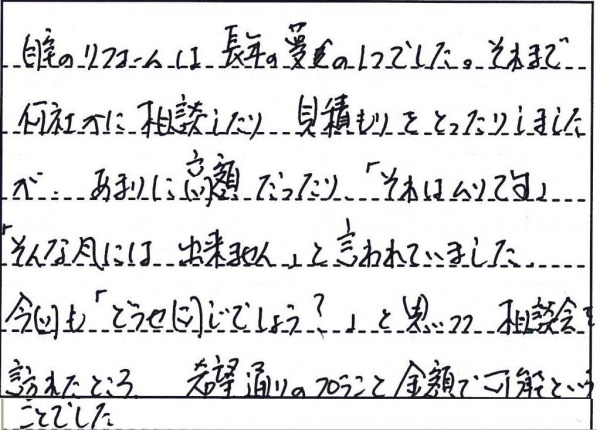 自宅のリフォームは 長年の夢の1つでした。それまで
何社かに 相談したり 見積もりを とったりしました
が、あまりに高額 だったり、「それはムリです」
「そんな風には 出来ません」と言われていました。
今回も「どうせ同じでしょう?」と思いつつ 相談会を
訪れたところ、希望通りのプランと金額で可能という
ことでした